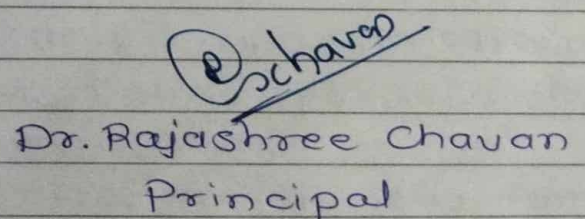 Rschavan
Dr. Rajashree Chavan
Principal